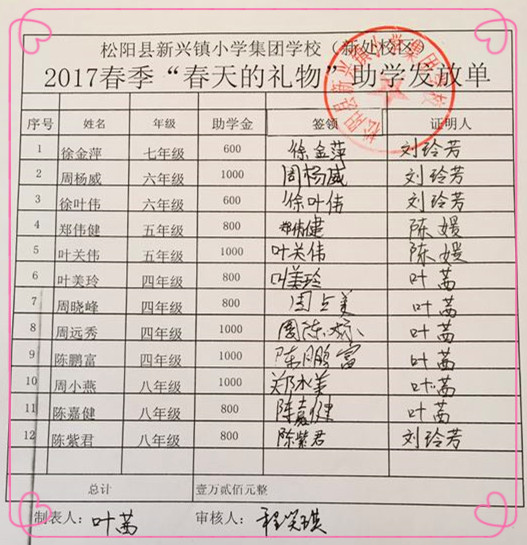 松阳县新兴镇小学集团学校（新处校区）
2017春季“春天的礼物”助学发放单
序号 姓名 年级 助学金 签领 证明人
1 徐金萍 七年级 600 徐金萍 刘玲芳
2 周杨威 六年级 1000 周杨威 刘玲芳
3 徐叶伟 六年级 600 徐叶伟 刘玲芳
4 郑伟健 五年级 800 郑伟健 陈媛
5 叶关伟 五年级 1000 叶关伟 陈媛
6 叶美玲 四年级 800 叶美玲 叶茜
7 周晓峰 四年级 800 叶茜
8 周远秀 四年级 1000 叶茜
9 陈鹏富 四年级 1000 陈鹏富 叶茜
10 周小燕 八年级 1000 叶茜
11 陈嘉健 八年级 800 陈嘉健 叶茜
12 陈紫君 八年级 800 陈紫君 刘玲芳
总计 壹万贰佰元整
制表人：叶茜 审核人：